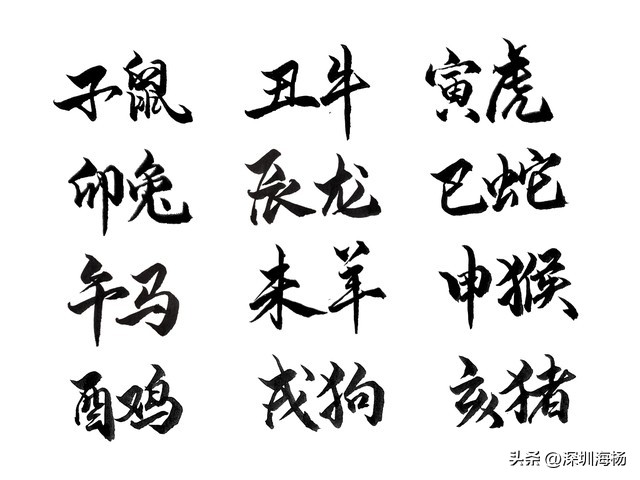 子鼠 丑牛 寅虎
卯兔 辰龙 巳蛇
午马 未羊 申猴
酉鸡 戌狗 亥猪
头条 @深圳海杨